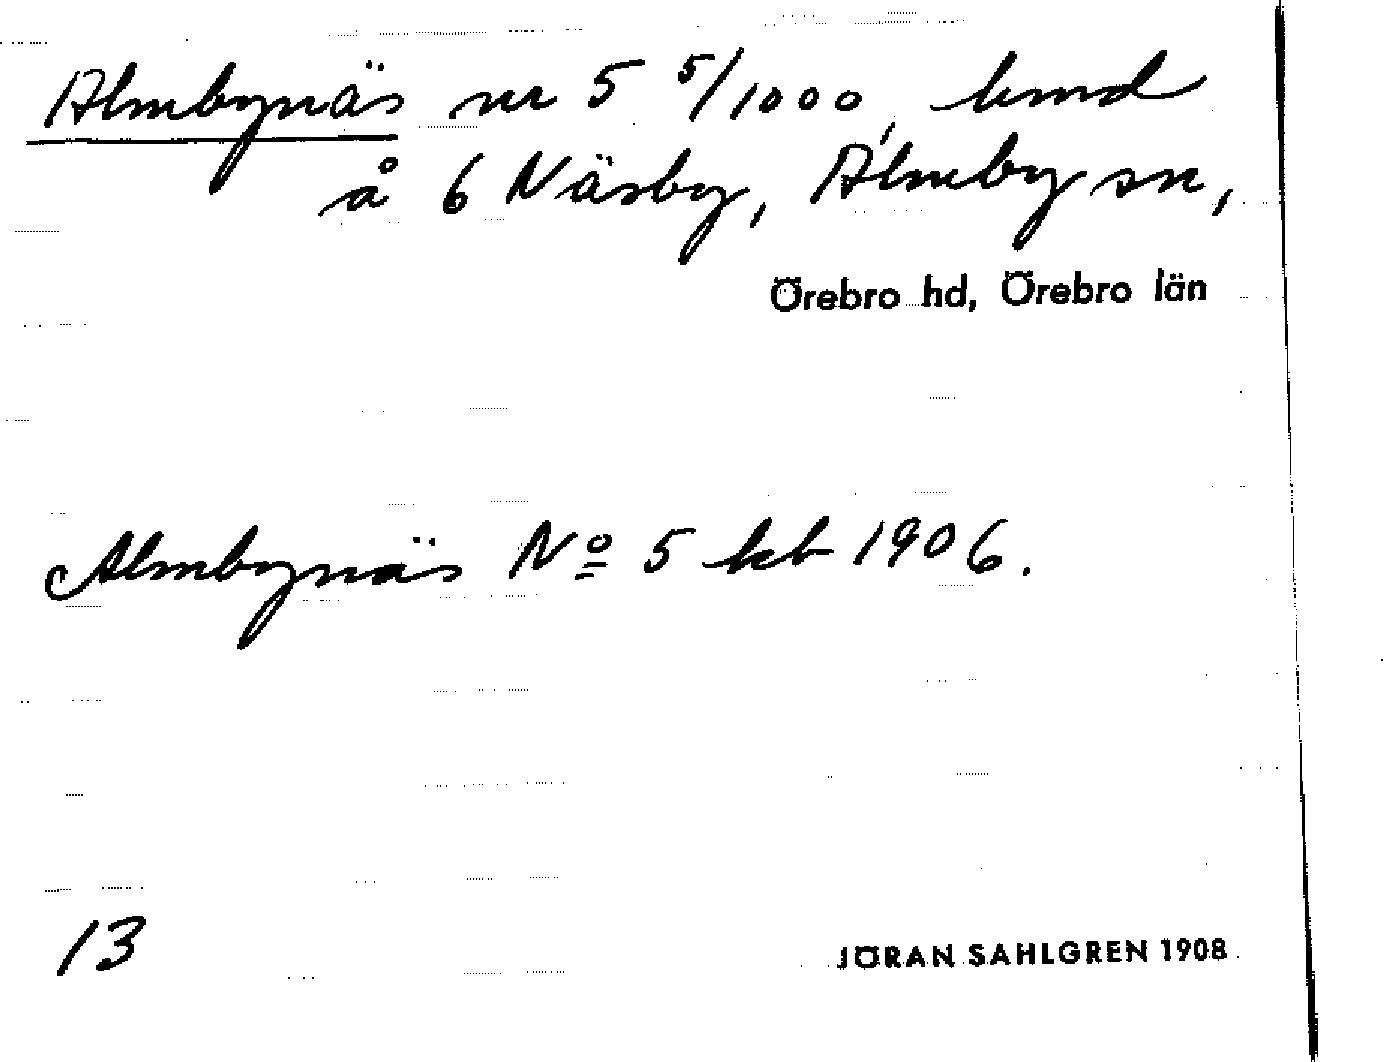 Almbynäs nr 5 5/1000, lmd
å 6 Näsby, Almby sn,
Örebro hd, Örebro län
Almbynäs No 5 kb 1906.
13
JÖRAN SAHLGREN 1908